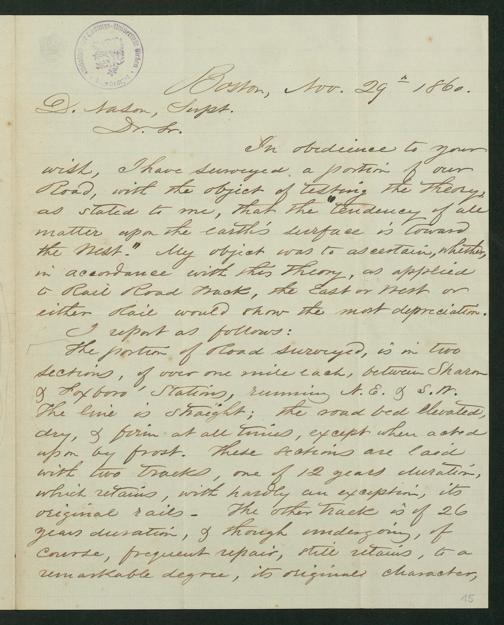 Boston, Nov. 29th 1860.
D. Nason, Supt.
Dr. Sr.
In obedience to your
wish, I have surveyed a portion of our
Road, with the object of testing the theory,
as stated to me, that the "tendency of all
matter upon the earth's surface is toward
the West." My object was to ascertain, whether,
in accordance with this theory, as applied
to Rail Road track, the East or West or
either Rail would show the most depreciation.
I report as follows:
The portion of Road surveyed, is in two
sections, of over one mile each, between Sharon
& Foxboro' Stations, running N.E. & S.W.
The line is straight; the road bed elevated,
dry, & firm at all times, except when acted
upon by frost. These sections are laid
with two tracks, one of 12 years duration,
which retains, with hardly an exception, its
original rails - The other track is of 26
years duration, & though undergoing, of
course, frequent repair, still retains, to a
remarkable degree, its original character,
15